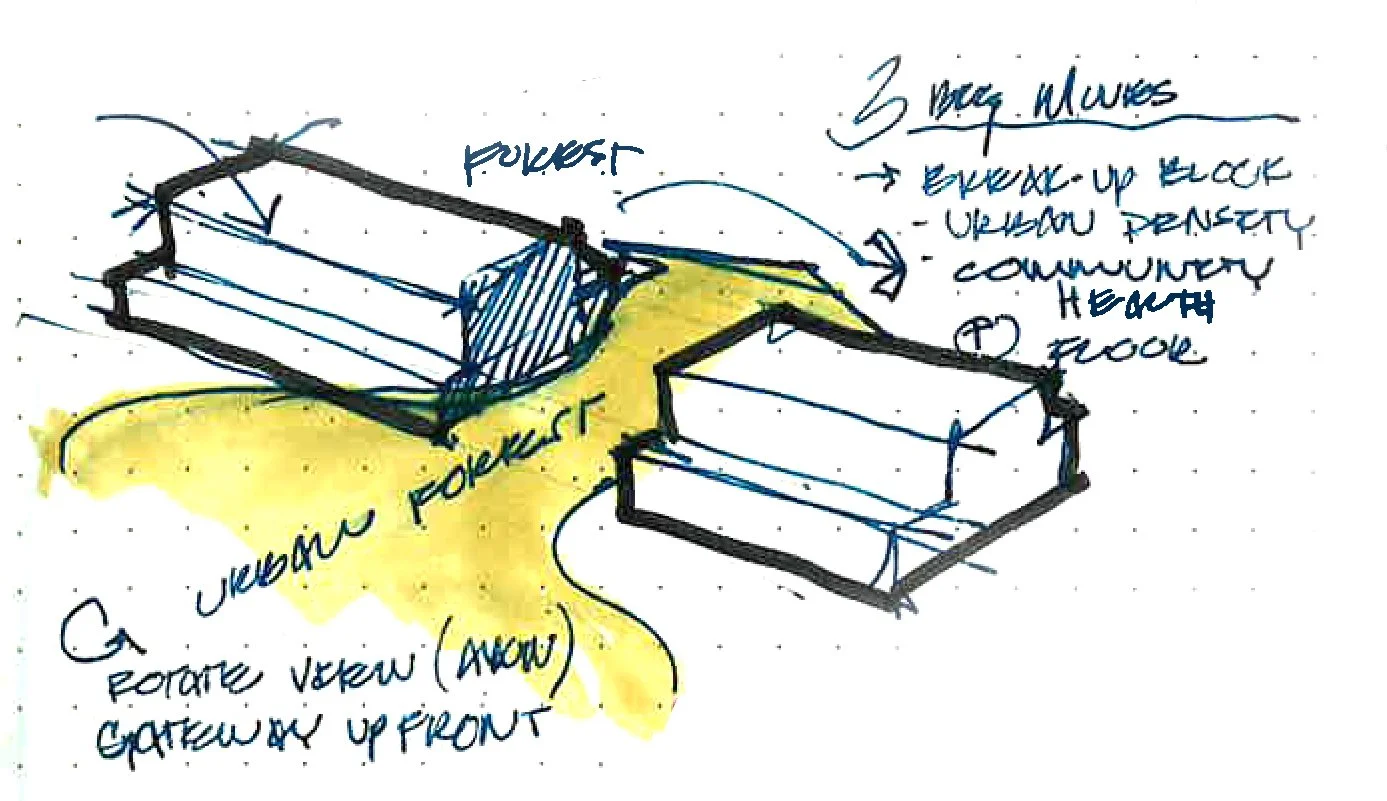 FORREST
3 BIG MOVES
→ BREAK-UP BLOCK
- URBAN DENSITY
- COMMUNITY
HEALTH
FLOOR
URBAN FORREST
ROTATE VIEW (AXON)
GATEWAY UP FRONT